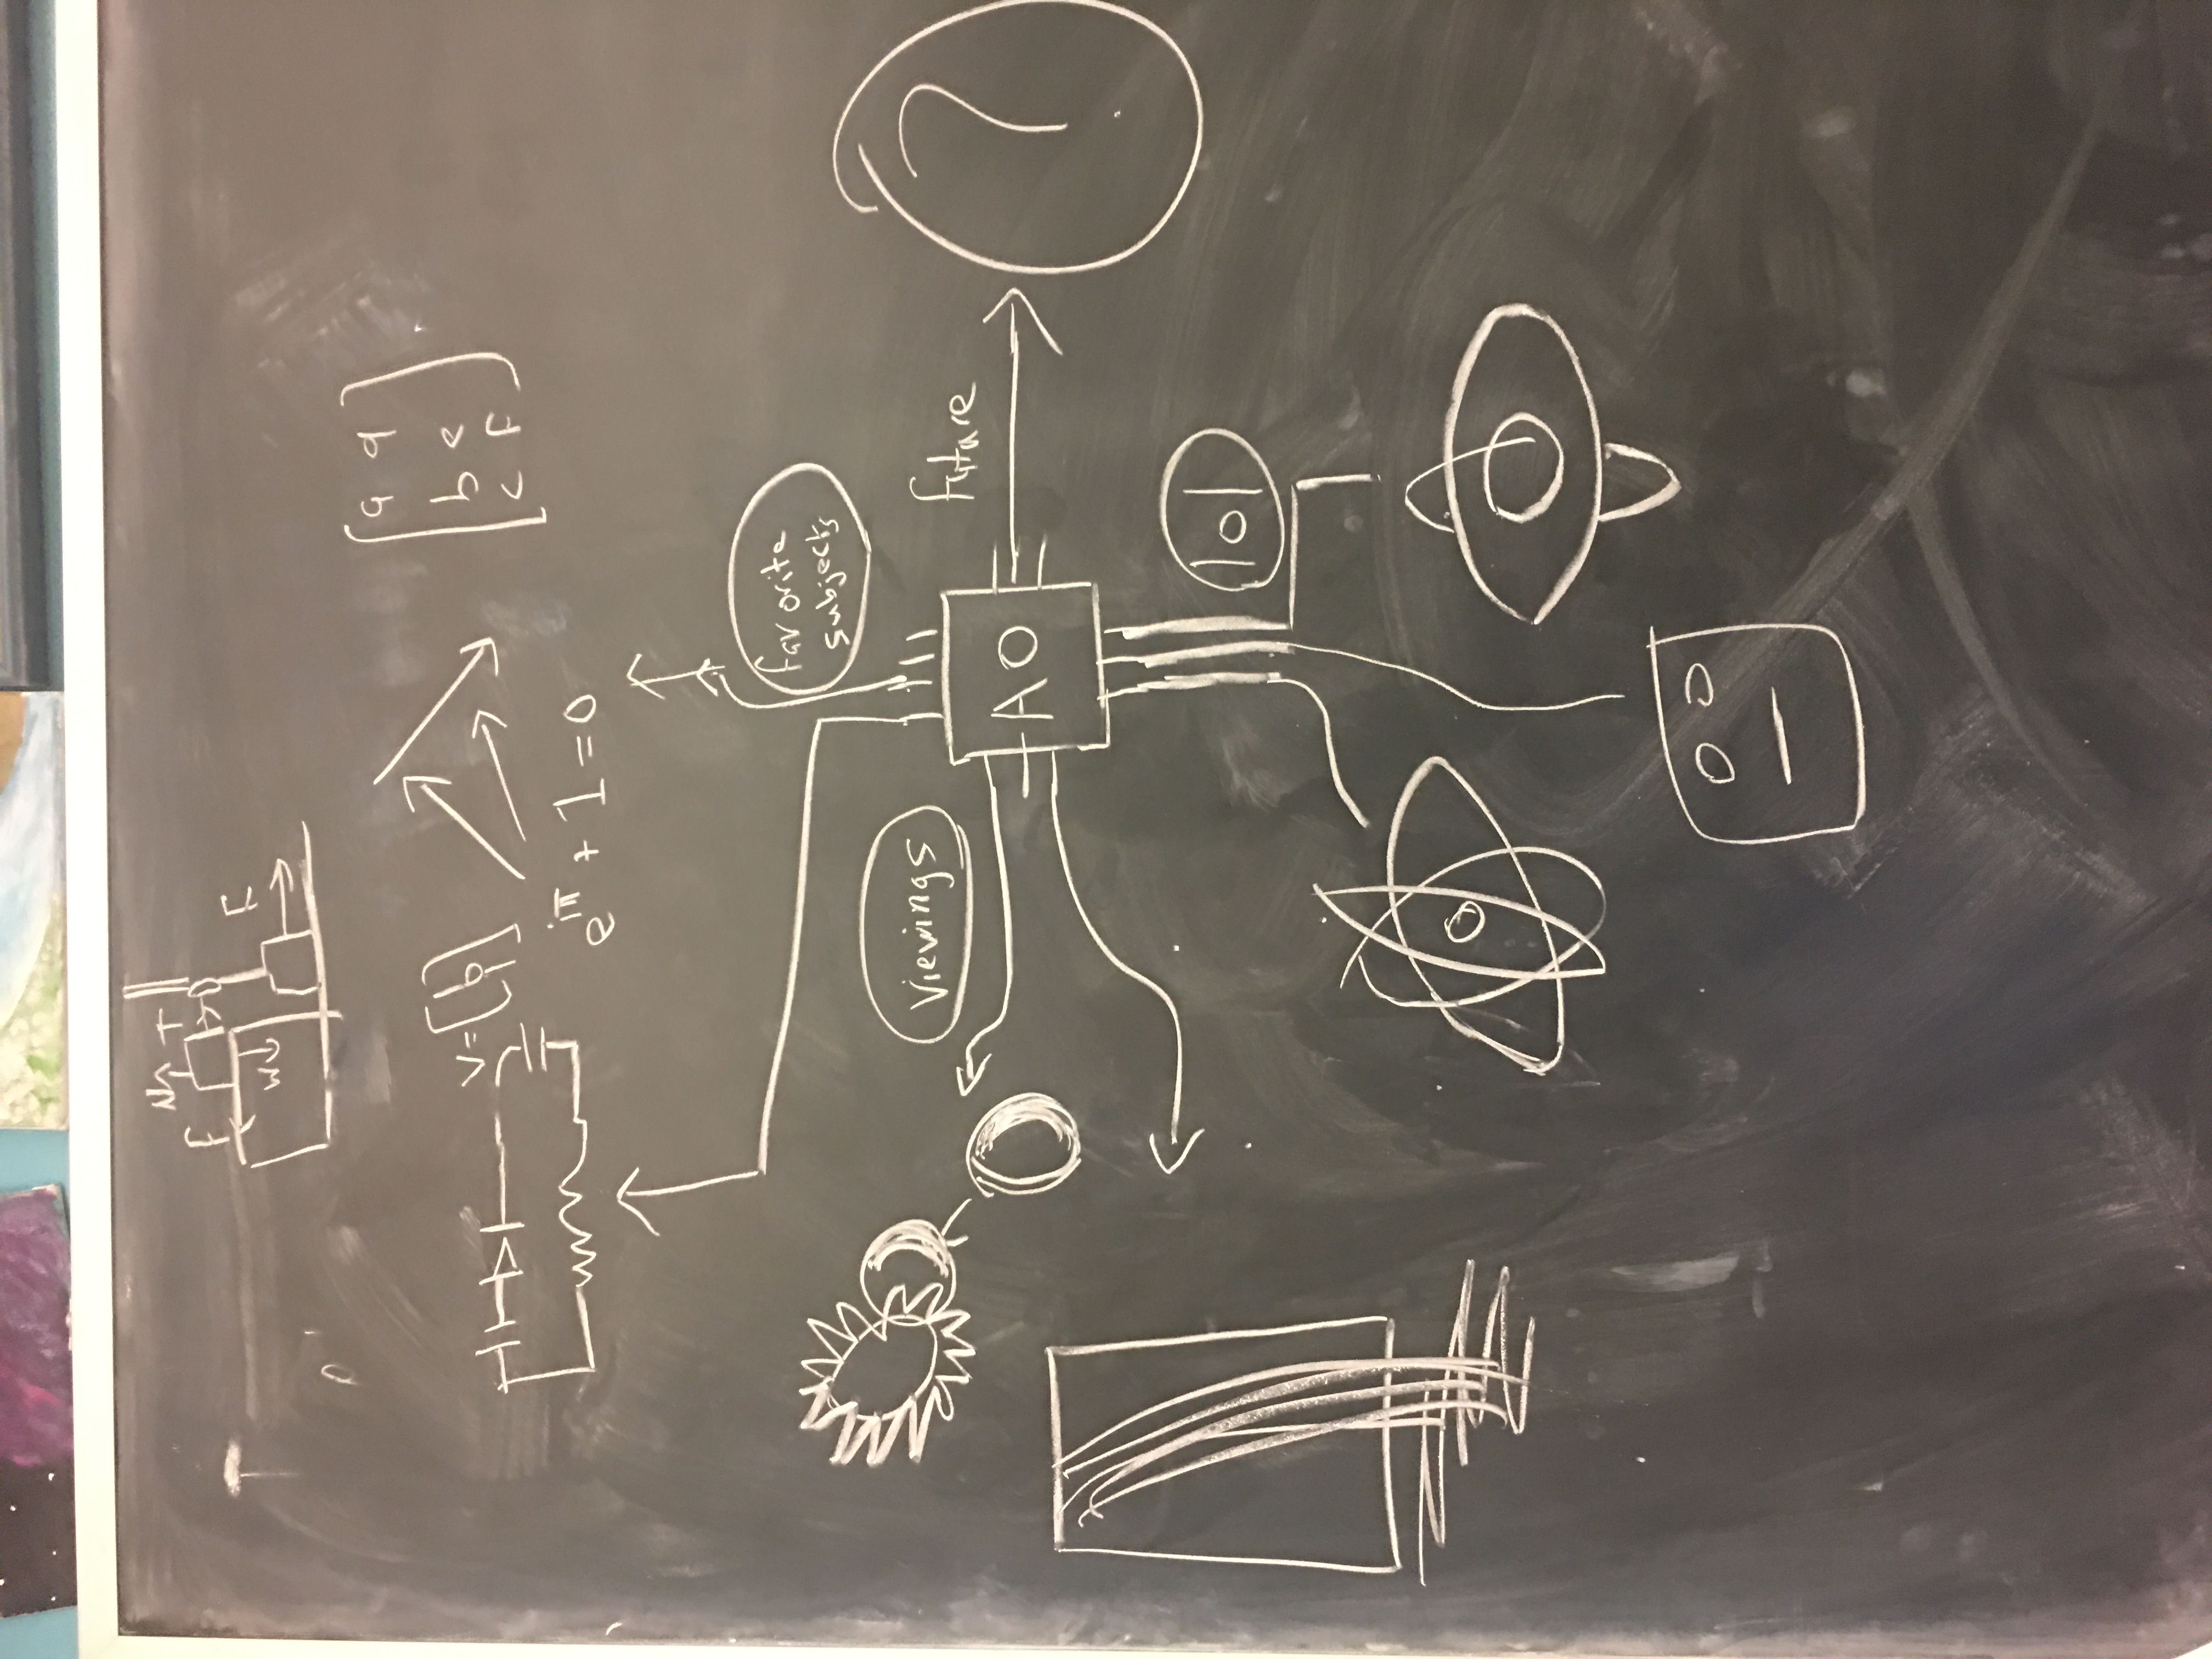 N T
F
W F
V=[b i]
a d
b e
c f
e^iπ + 1 = 0
favorite
subjects
Viewings
future
AO
?
101